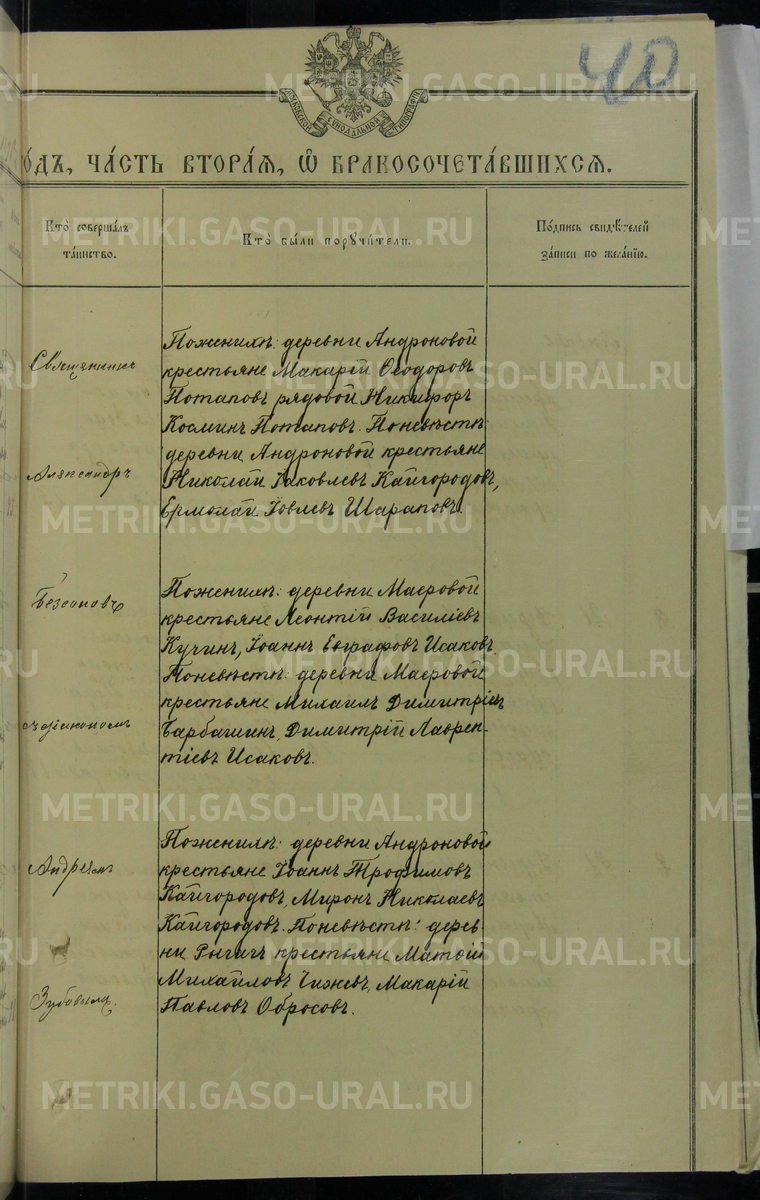 40
МОСКОВСКОЙ СѴНОДАЛЬНОЙ ТИПОГРАФІИ
О́ДЪ, ЧА́СТЬ ВТОРА́Ѧ, Ѽ БРАКОСОЧЕТА́ВШИХСѦ.
Кто̀ соверша́лъ
та́инство.
Кто̀ бы́ли порꙋчи́тели.
По́дпись свидѣ́телей
за́писи по жела́нїю.
Священникъ
Александръ
Безсоновъ
съ діакономъ
Андреемъ
Зубовымъ.
Поженихѣ: деревни Андроновой
крестьяне Макарій Ѳеодоровъ
Потаповъ рядовой Никифоръ
Косминъ Потаповъ. Поневѣстѣ:
деревни Андроновой крестьяне
Николай Іаковлевъ Кайгородовъ,
Ермолай Іовлевъ Шараповъ.
Поженихѣ: деревни Маеровой
крестьяне Леонтій Василіевъ
Кучинъ, Іоаннъ Евграфовъ Исаковъ
Поневѣстѣ: деревни Маеровой
крестьяне Михаилъ Димитріевъ
Барбашинъ, Димитрій Лаврен-
тіевъ Исаковъ.
Поженихѣ: деревни Андроновой
крестьяне Іоаннъ Трофимовъ
Кайгородовъ, Миронъ Николаевъ
Кайгородовъ. Поневѣстѣ: дерев-
ни крестьяне Матѳій
Михайловъ Чижевъ, Макарій
Павловъ Обросовъ.
METRIKI.GASO-URAL.RU